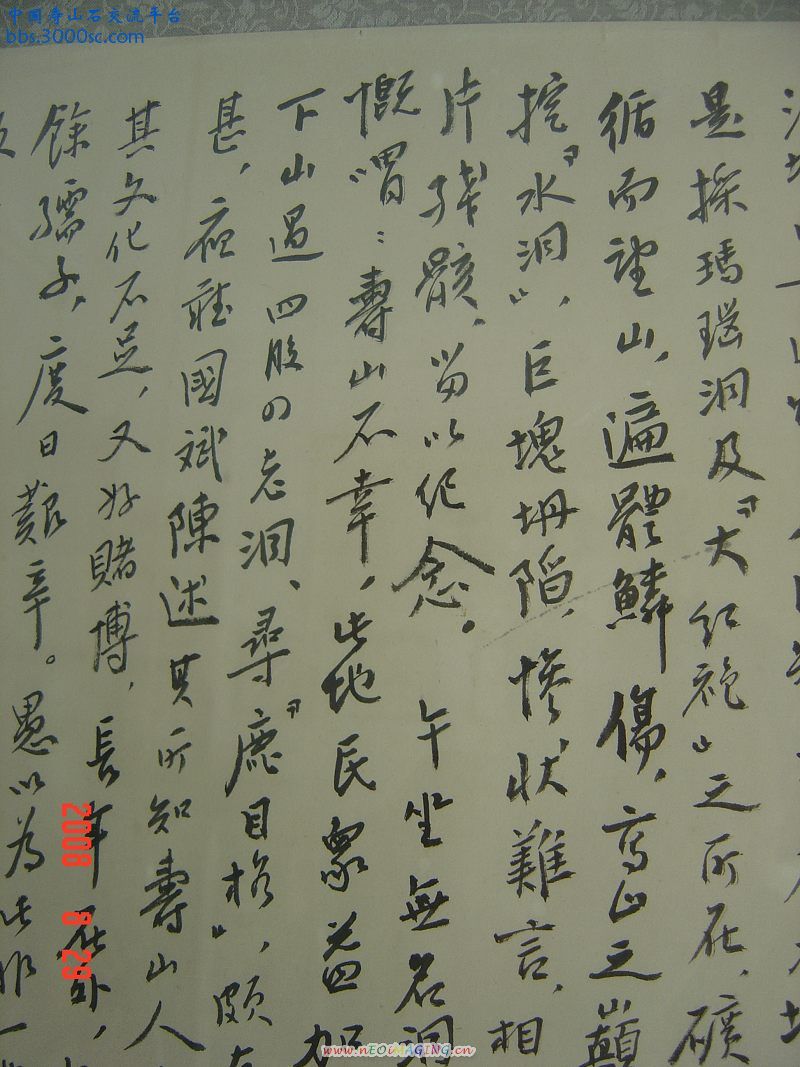 中国寿山石交流平台
bbs.3000sc.com
是採瑪瑙洞及『大紅袍』之所在，礦
循而望山，遍體鱗傷，高山之巔
挖『水洞』，巨塊坍陷，慘状難言，相
片残骸，留以纪念。 午坐無名洞
慨喟：壽山石幸，此地民衆益加
下山過四股四志洞、尋『鹿目格』，頗有
甚，夜聽國斌陳述其所知壽山人
其文化不足，又好賭博，長年在外，
餘孺子，度日艱辛。愚以為此非一
2008 8 29
www.nEOiMAGING.cn